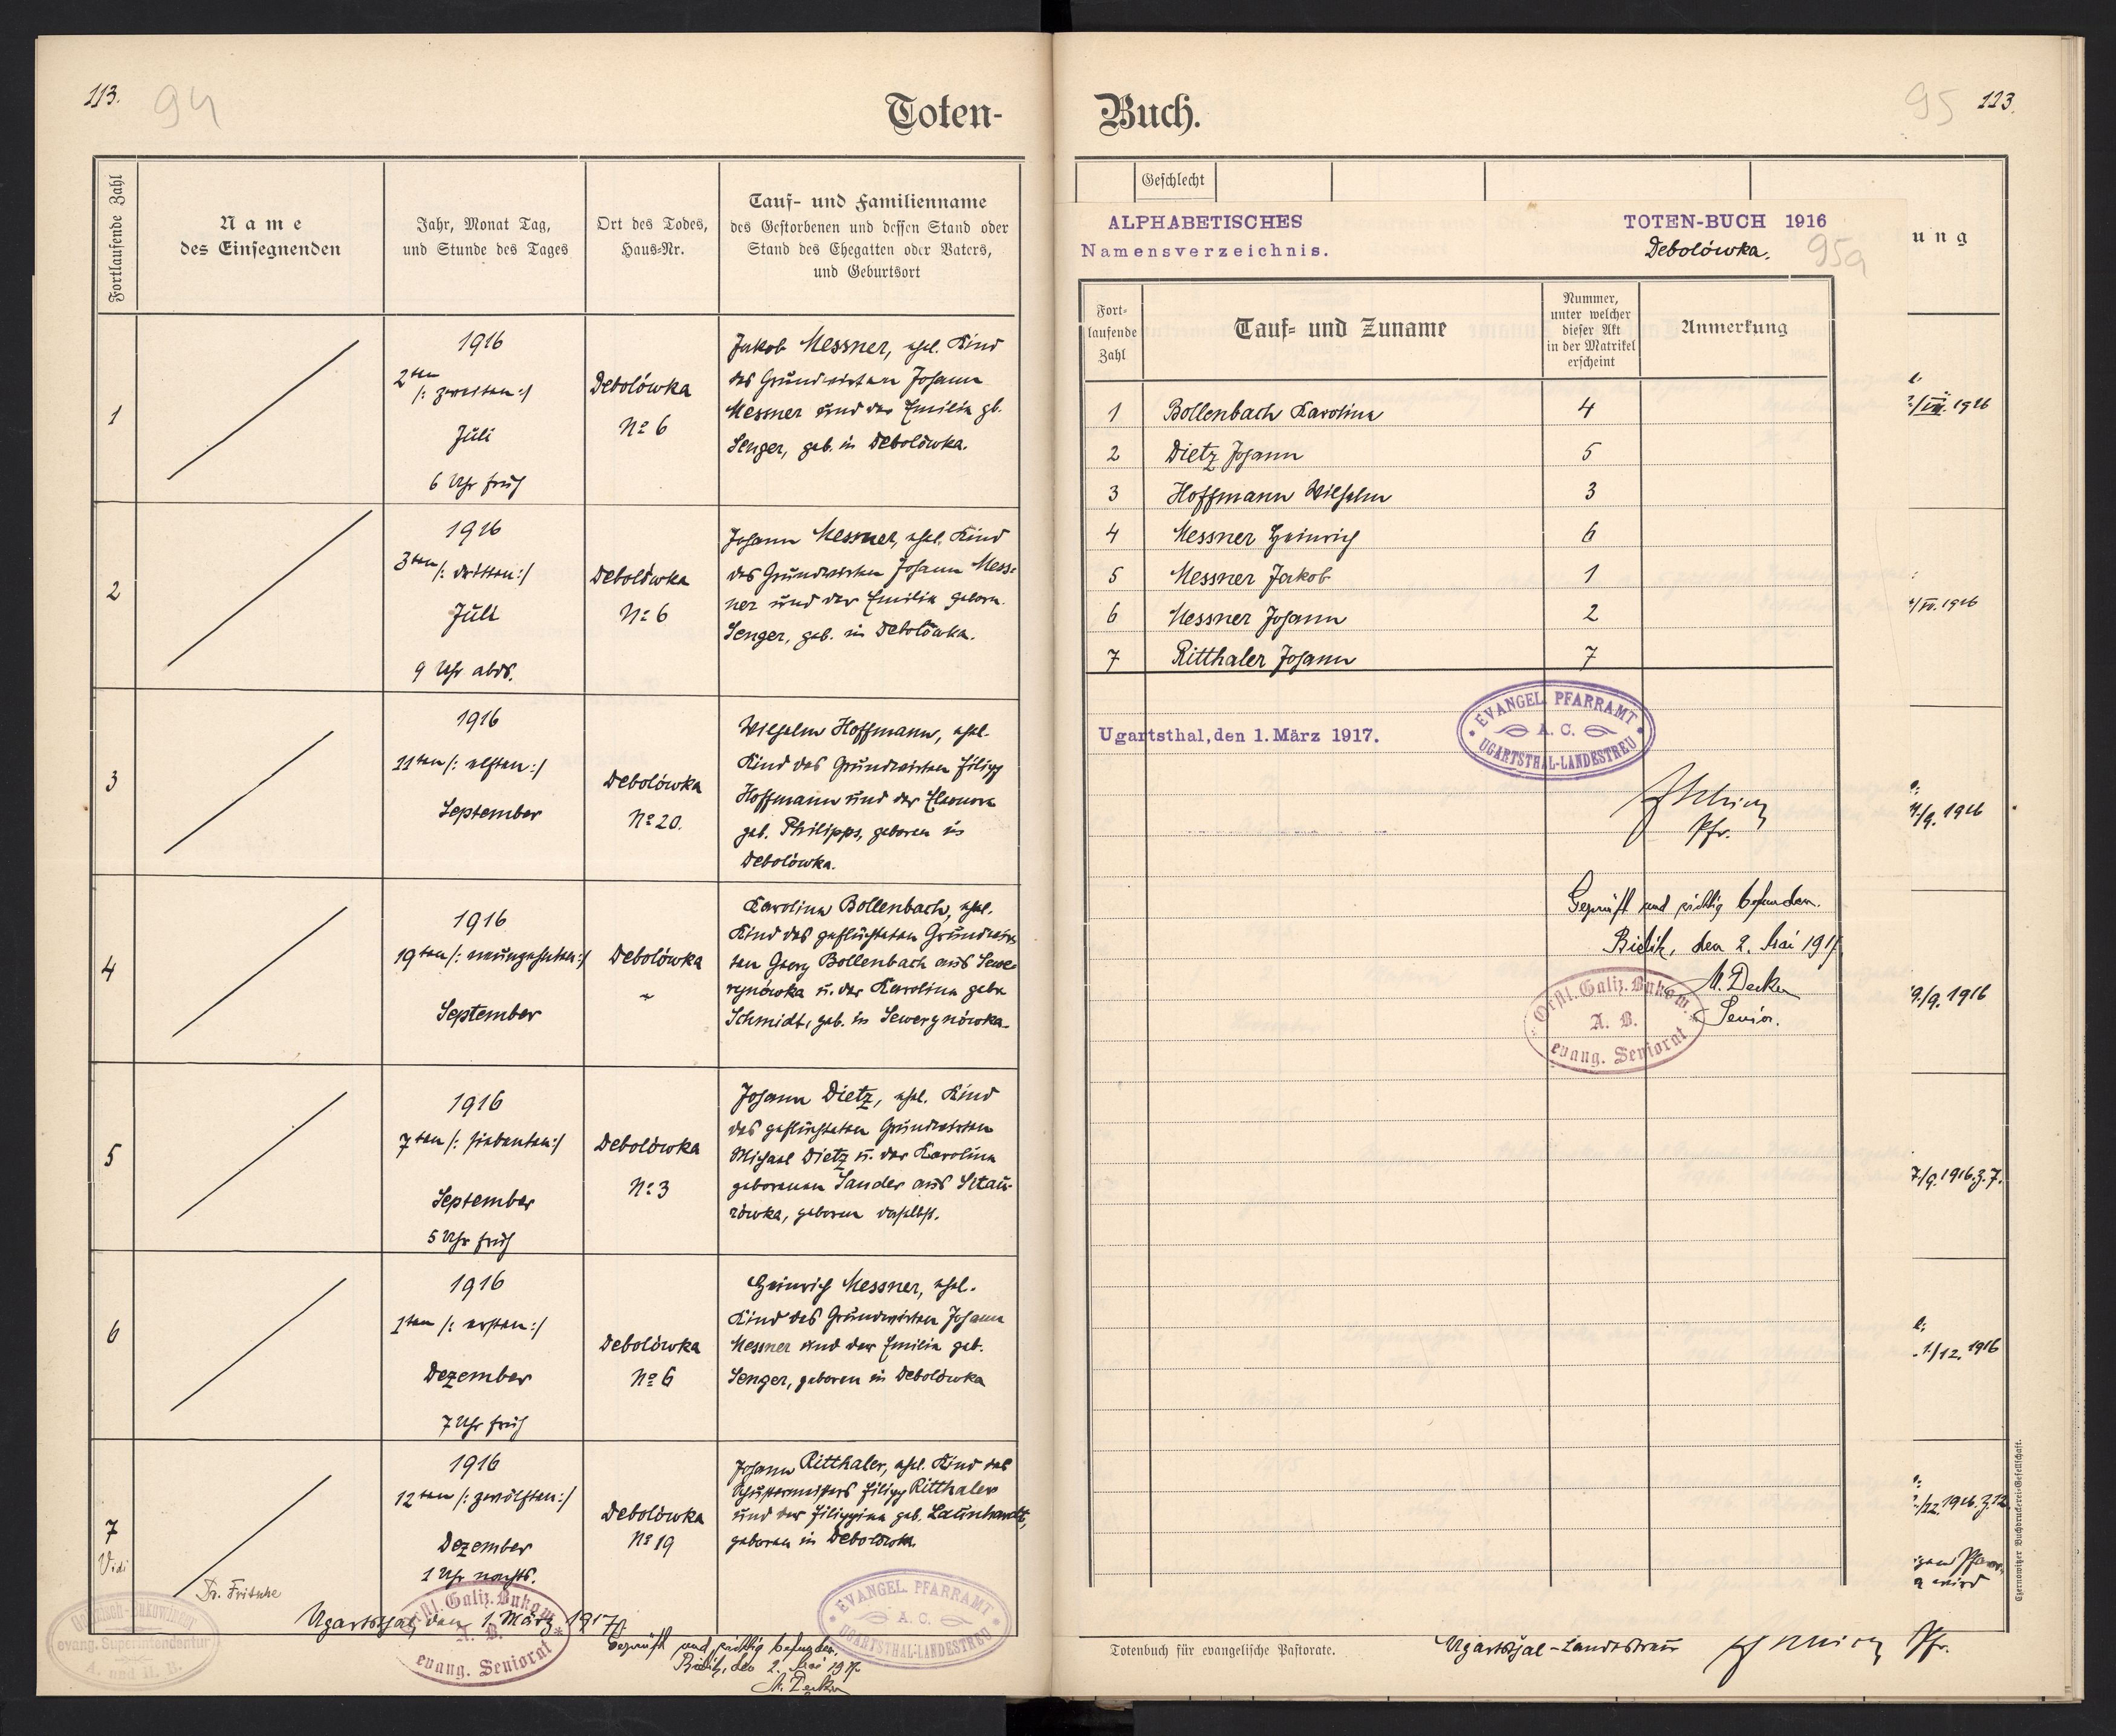 113.
94
Toten-
Fortlaufende Zahl
Name
des Einsegnenden
Jahr, Monat Tag,
und Stunde des Tages
Ort des Todes,
Haus-Nr.
Tauf- und Familienname
des Gestorbenen und dessen Stand oder
Stand des Ehegatten oder Vaters,
und Geburtsort
1
1916
2ten
/: zweiten :/
Juli
6 Uhr früh
Debolówka
No 6
Jakob Messner, ehel. Kind
des Grundwirten Johann
Messner und der Emilia gb.
Senger, geb. in Debolówka.
2
1916
3ten /: dritten :/
Juli
9 Uhr abds.
Debolówka
No 6
Johann Messner, ehel. Kind
des Grundwirten Johann Mess-
ner und der Emilia geborn.
Senger, geb. in Debolówka.
3
1916
11ten /: elften :/
September
Debolówka
No 20.
Wilhelm Hoffmann, ehel.
Kind des Grundwirten Filipp
Hoffmann und der Eleonora
geb. Philipps, geboren in
Debolówka.
4
1916
19ten /: neunzehnten :/
September
Debolówka
Karolina Bollenbach, ehel.
Kind des geflüchteten Grundwir-
ten Georg Bollenbach aus Sewe-
rynówka u. der Karolina gebn
Schmidt, geb. in Sewerynówka.
5
1916
7ten /: siebenten :/
September
5 Uhr früh
Debolówka
No 3
Johann Dietz, ehel. Kind
des geflüchteten Grundwirten
Michael Dietz u. der Karolina
geborenen Sander aus Sitau-
rówka, geboren daselbst.
6
1916
1ten /: ersten :/
Dezember
7 Uhr früh
Debolówka
No 6
Heinrich Messner, ehel.
Kind des Grundwirten Johann
Messner und der Emilia geb.
Senger, geboren in Debolówka
7
Vidi
1916
12ten /: zwölften :/
Dezember
1 Uhr nachts.
Debolówka
No 19
Johann Ritthaler, ehel. Kind des
Schustermeisters Filipp Ritthaler
und der Filippina geb. Launhardt,
geboren in Debolówka.
Dr. Fritsche
evang. Superintendentur
A. und H. B.
Ugartsthal, den 1. März 1917
Galiz. Bukow.
A. B.
evang. Seniorat
Geprüft und richtig befunden.
Bielitz, den 2. Mai 1917.
M. Decker
EVANGEL. PFARRAMT
A. C.
UGARTSTHAL-LANDESTREU
Buch.
95
113.
Geschlecht
ung
ALPHABETISCHES
Namensverzeichnis.
TOTEN-BUCH 1916
Debolówka.
95a
Fort-
laufende
Zahl
Tauf- und Zuname
Nummer,
unter welcher
dieser Akt
in der Matrikel
erscheint
Anmerkung
1 Bollenbach Karolina 4
2 Dietz Johann 5
3 Hoffmann Wilhelm 3
4 Messner Heinrich 6
5 Messner Jakob 1
6 Messner Johann 2
7 Ritthaler Johann 7
Ugartsthal, den 1. März 1917.
EVANGEL. PFARRAMT
A. C.
UGARTSTHAL-LANDESTREU
Pfr.
Geprüft und richtig befunden.
Bielitz, den 2. Mai 1917
M. Decker
Senior.
Galiz. Bukow.
A. B.
evang. Seniorat
/VII. 1916
/VII. 1916
/9. 1916
9./9. 1916
7/9. 1916. Z. 7.
1./12. 1916
/12. 1916. Z. 12
wird
Totenbuch für evangelische Pastorate.
Ugartsthal-Landestreu
Pfr.
Czernowitzer Buchdruckerei-Gesellschaft.